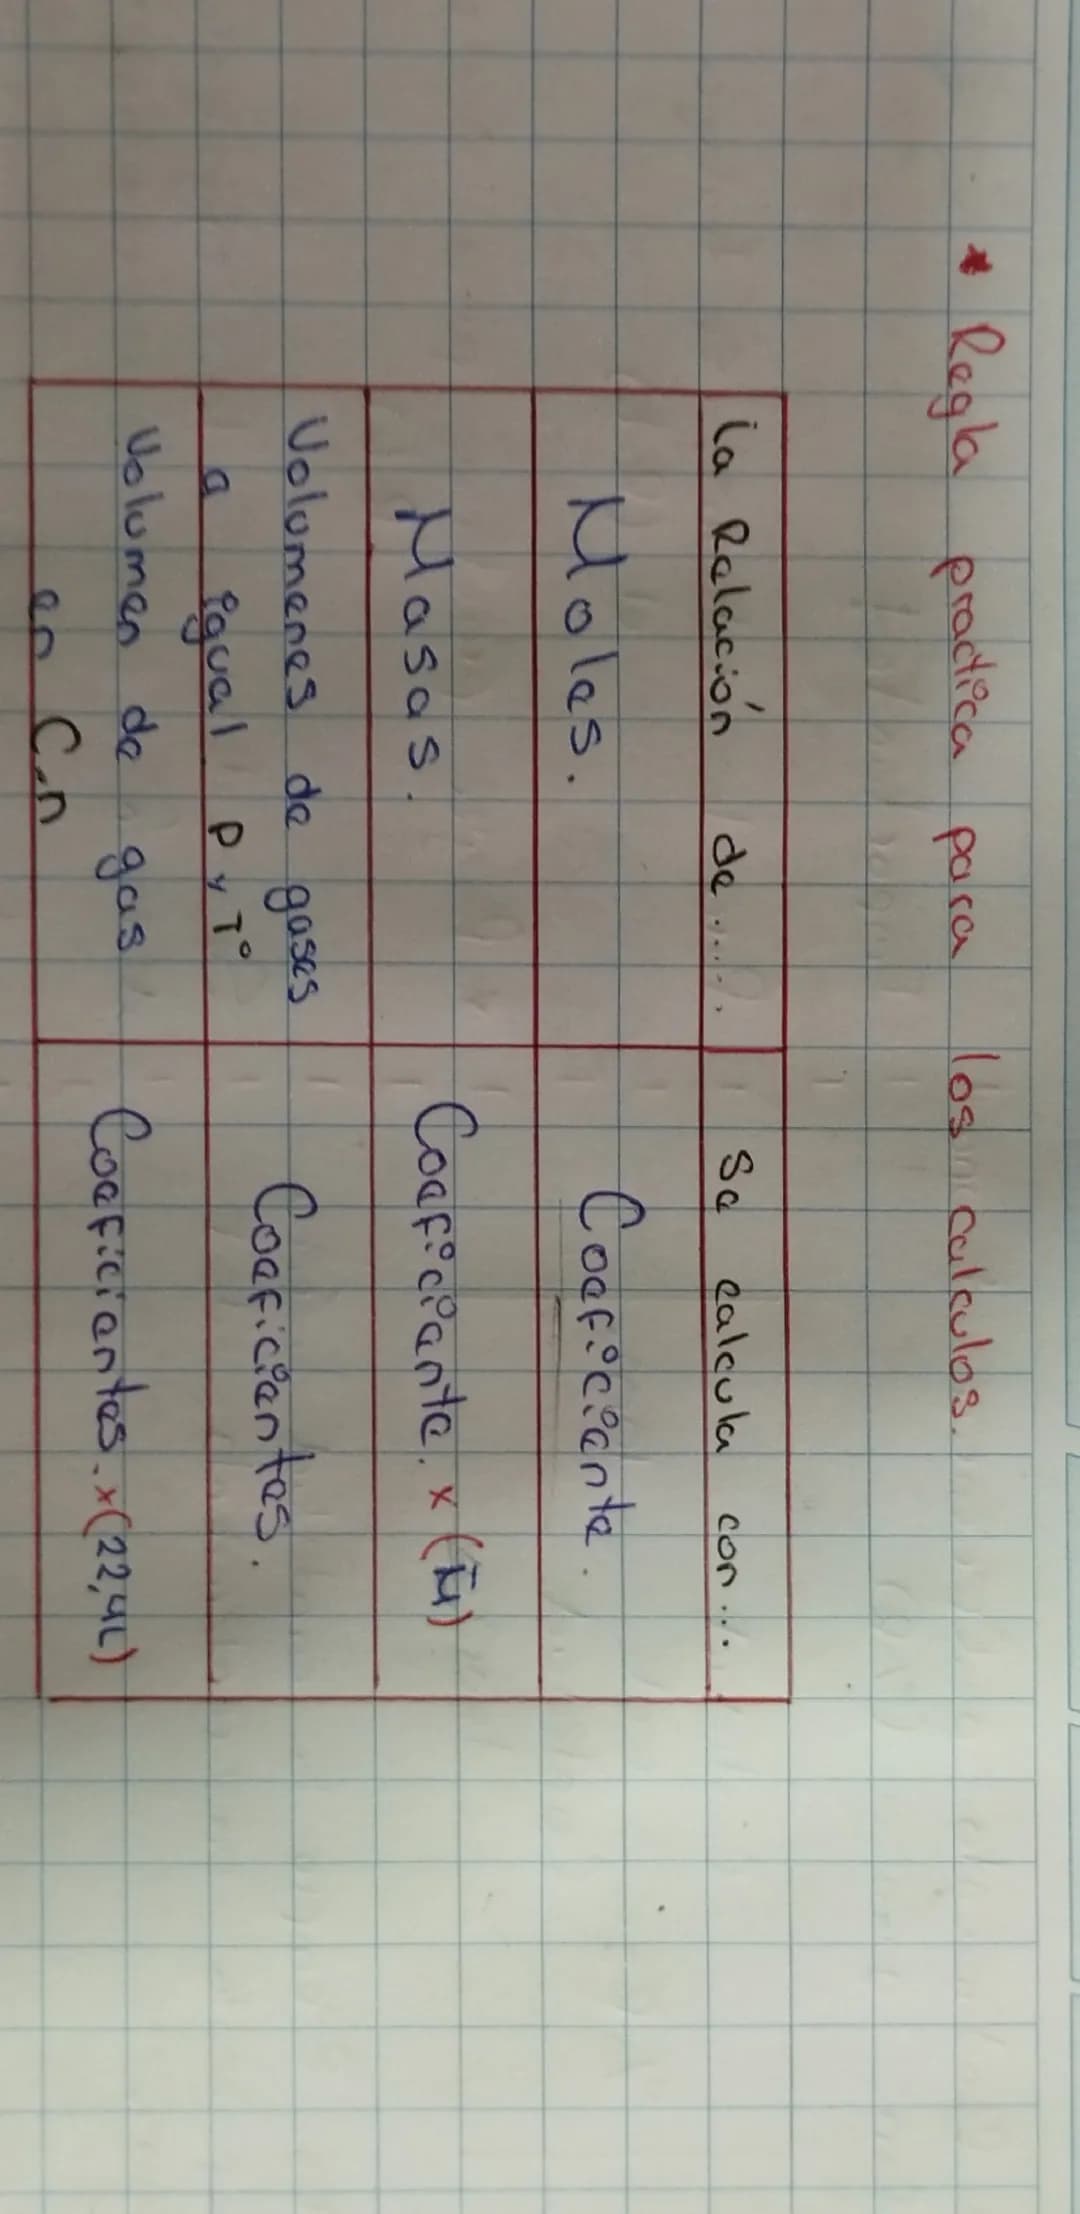 * Regla practica para los calculos.
La Relación de..... Se calcula con...
Moles. Coeficiente.
Masas. Coeficiente. x (M̄)
Volumenes de gases
a igual P y T° Coeficientes.
Volumen de gas
en C.n Coeficientes. x (22,4L)